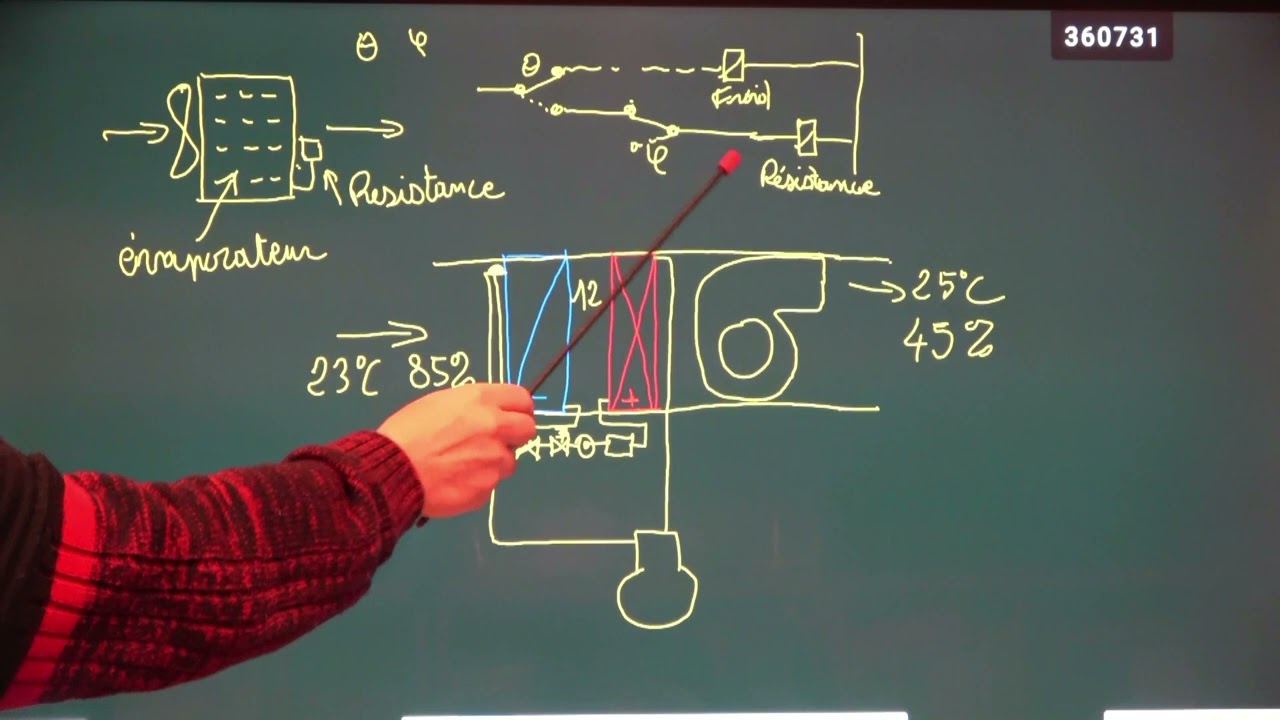 360731
θ φ
θ
Froid
φ
Résistance
Resistance
évaporateur
12
23°C 85%
25°C
45%
-
+